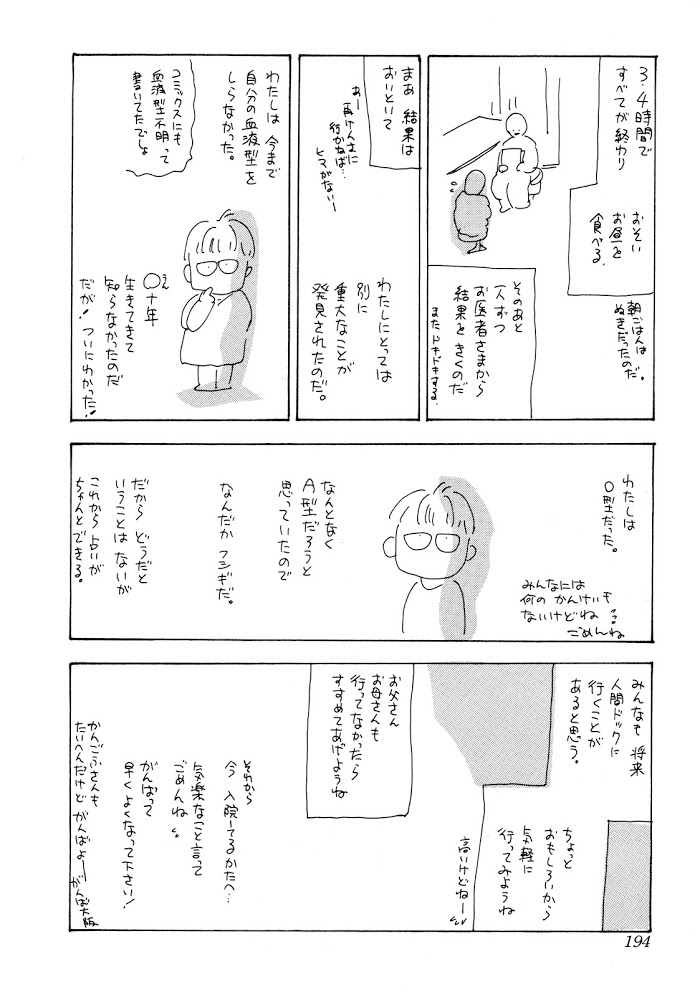 3、4時間で
すべてが終わり
おそい
お昼を
食べる。
朝ごはんは
ぬきだったのだ。
そのあと
一人ずつ
お医者さまから
結果をきくのだ
またドキドキする。
まあ 結果は
おいといて
あー
再けんさに
行かねば…
ヒマがないー
わたしにとっては
別に
重大なことが
発見されたのだ。
わたしは 今まで
自分の血液型を
しらなかった。
コミックスにも
血液型不明って
書いてたでしょ
え
〇十年
生きてきて
知らなかったのだ
だが! ついにわかった!
わたしは
O型だった。
みんなには
何の かんけいも
ないけどね
ごめんね
なんとなく
A型だろうと
思っていたので
なんだか フシギだ。
だから どうだと
いうことは ないが
これから占いが
ちゃんとできる。
みんなも 将来
人間ドックに
行くことが
あると思う。
ちょっと
おもしろいから
気軽に
行ってみようね
高いけどねー
お父さん
お母さんも
行ってなかったら
すすめてあげようね
それから
今 入院してるかたへ…
気楽なこと言って
ごめんね
がんばって
早くよくなって下さい!
かんごふさんも
たいへんだけど がんばよー
がんば大阪
194